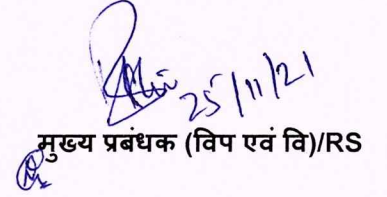 25/11/21
मुख्य प्रबंधक (विप एवं वि)/RS